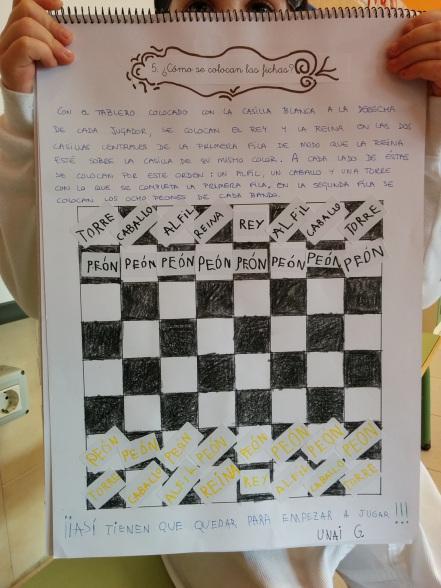 5. ¿Cómo se colocan las fichas?
CON EL TABLERO COLOCADO CON LA CASILLA BLANCA A LA DERECHA
DE CADA JUGADOR, SE COLOCAN EL REY Y LA REINA EN LAS DOS
CASILLAS CENTRALES DE LA PRIMERA FILA DE MODO QUE LA REINA
ESTÉ SOBRE LA CASILLA DE SU MISMO COLOR. A CADA LADO DE ÉSTAS
SE COLOCAN POR ESTE ORDEN: UN ALFIL, UN CABALLO Y UNA TORRE
CON LO QUE SE COMPLETA LA PRIMERA FILA. EN LA SEGUNDA FILA SE
COLOCAN LOS OCHO PEONES DE CADA BANDO.
TORRE CABALLO ALFIL REINA REY ALFIL CABALLO TORRE
PEÓN PEÓN PEÓN PEÓN PEÓN PEÓN PEÓN PEÓN
PEÓN PEÓN PEÓN PEÓN PEÓN PEÓN PEÓN PEÓN
TORRE CABALLO ALFIL REINA REY ALFIL CABALLO TORRE
¡¡ASÍ TIENEN QUE QUEDAR PARA EMPEZAR A JUGAR!!!
UNAI G.